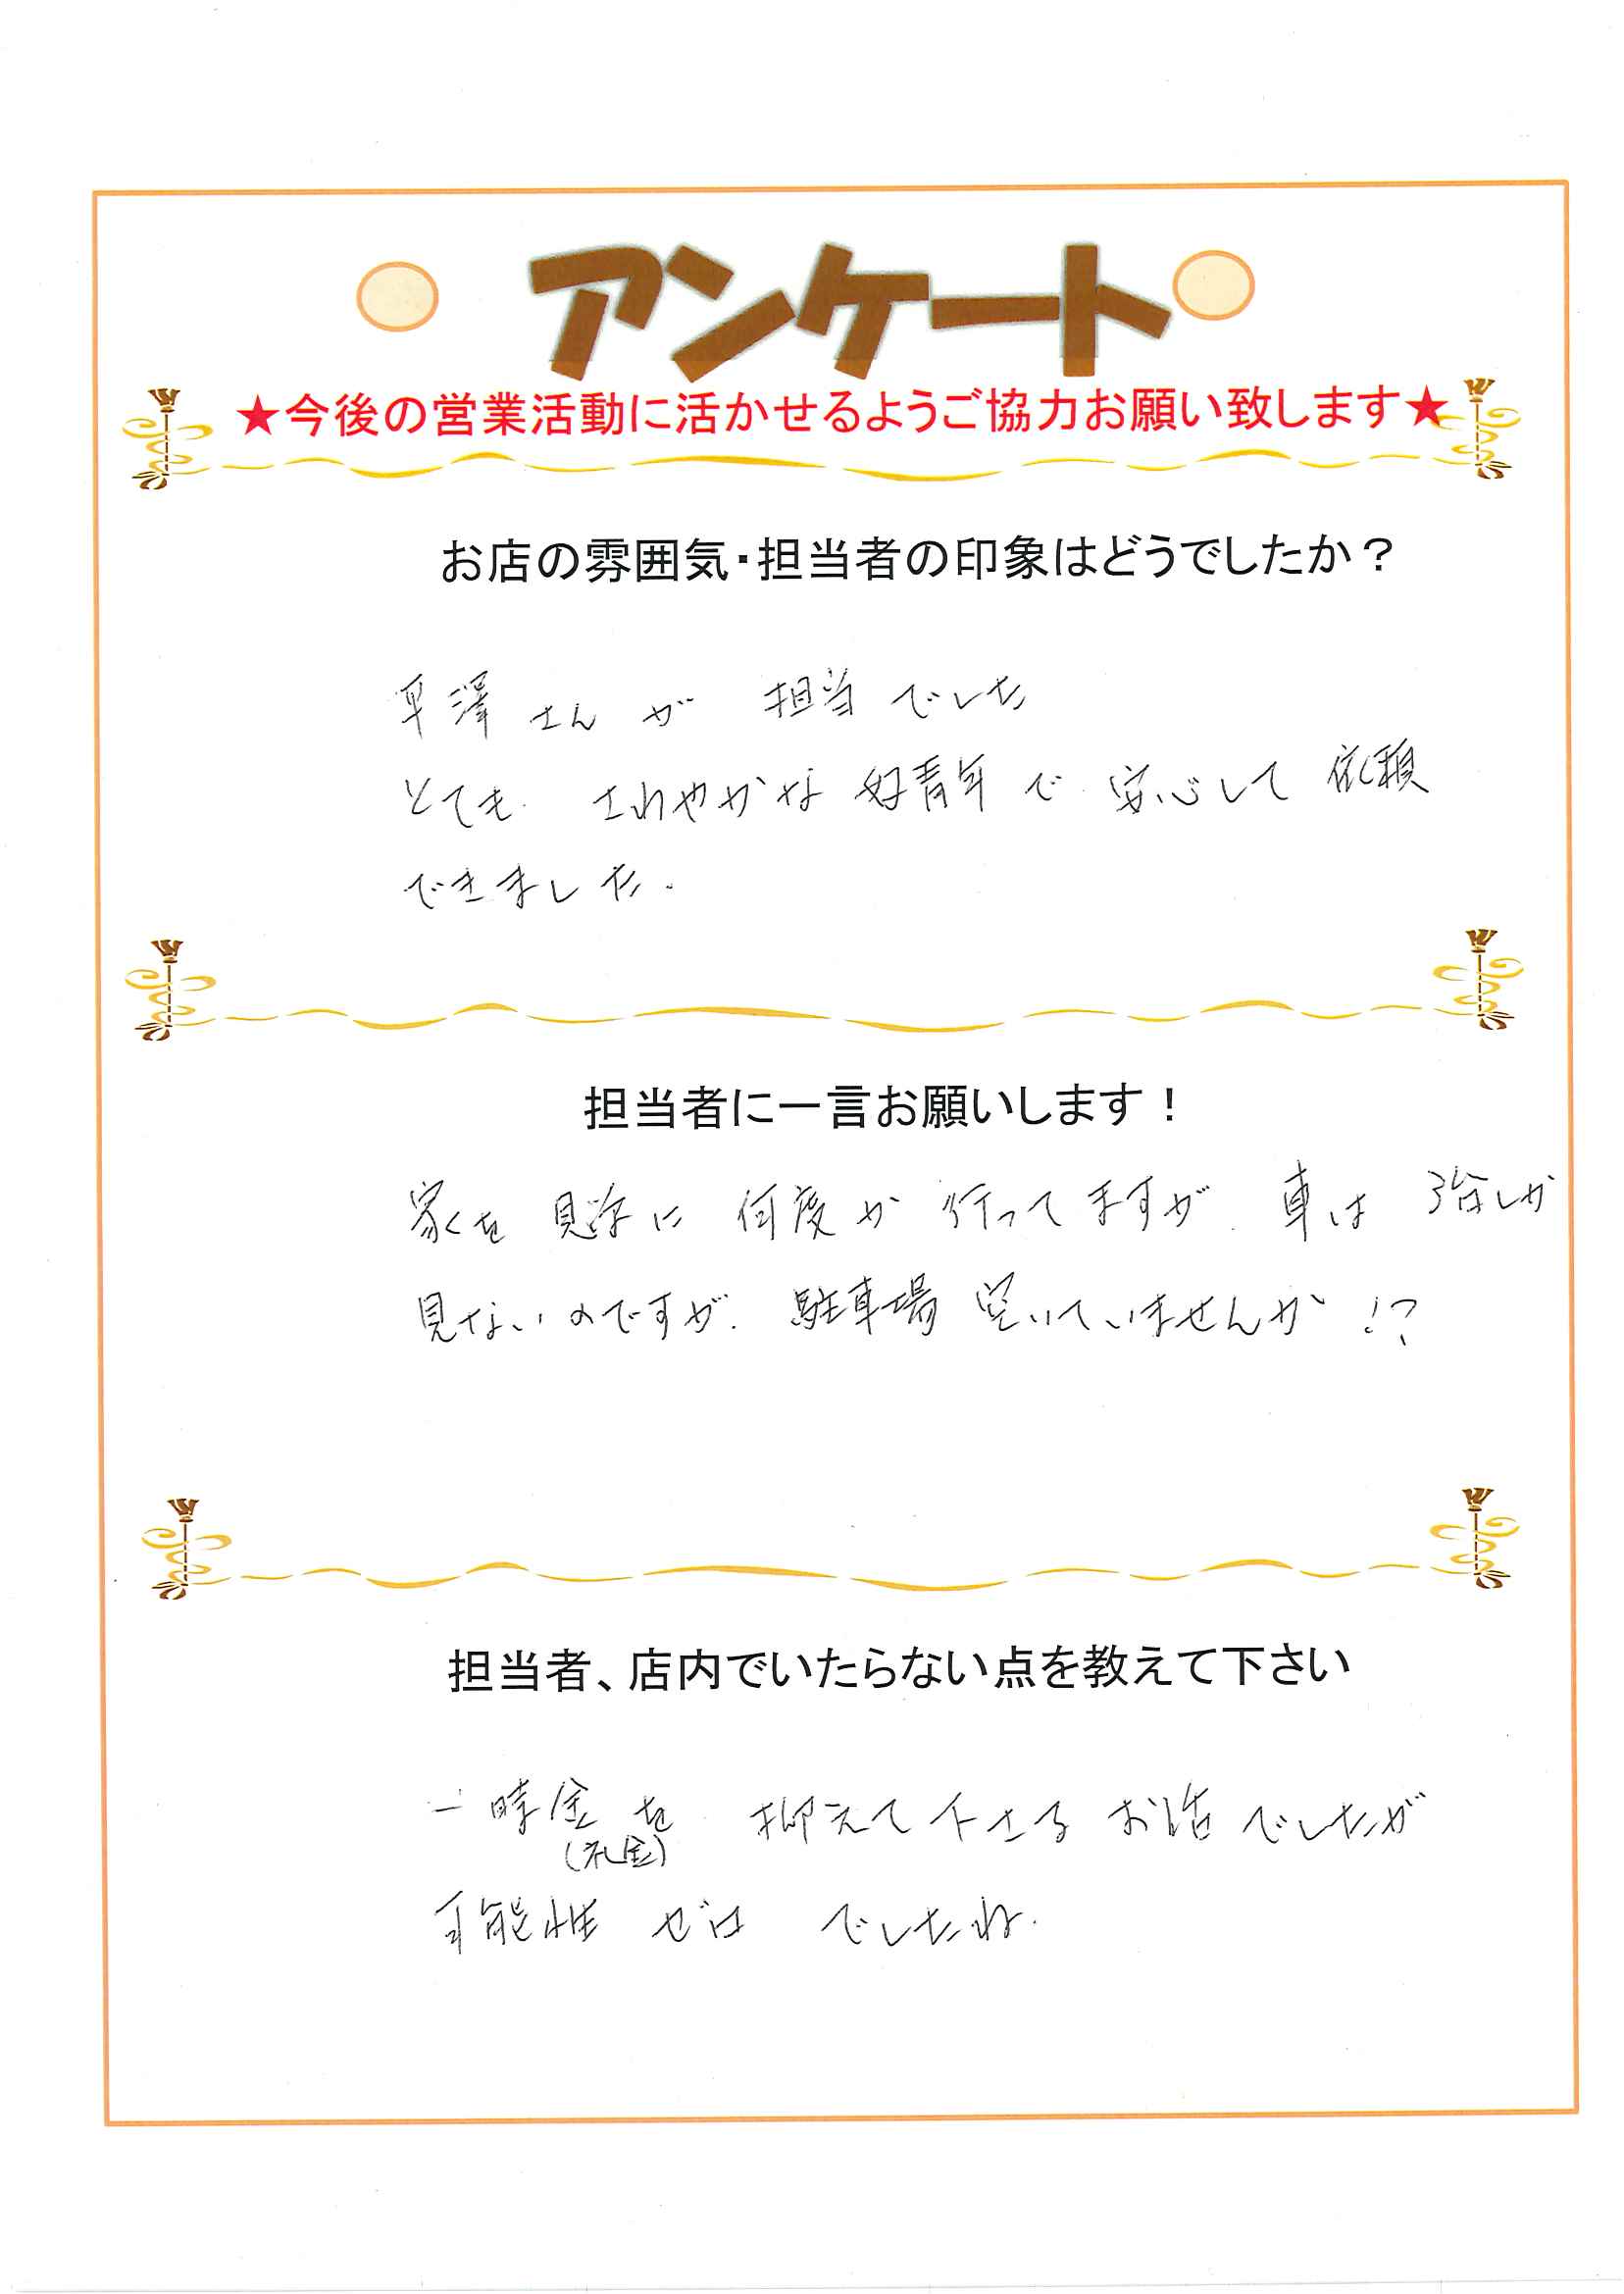 アンケート
★今後の営業活動に活かせるようご協力お願い致します★
お店の雰囲気・担当者の印象はどうでしたか？
平澤さんが 担当でした
とても さわやかな 好青年で 安心して 依頼
できました.
担当者に一言お願いします！
家を 見学に 何度か 行ってますが. 車は 3台しか
見ないのですが. 駐車場 空いていませんか !?
担当者、店内でいたらない点を教えて下さい
一時金を 抑えて下さる お話でしたが
(礼金)
可能性 ゼロ でしたね.